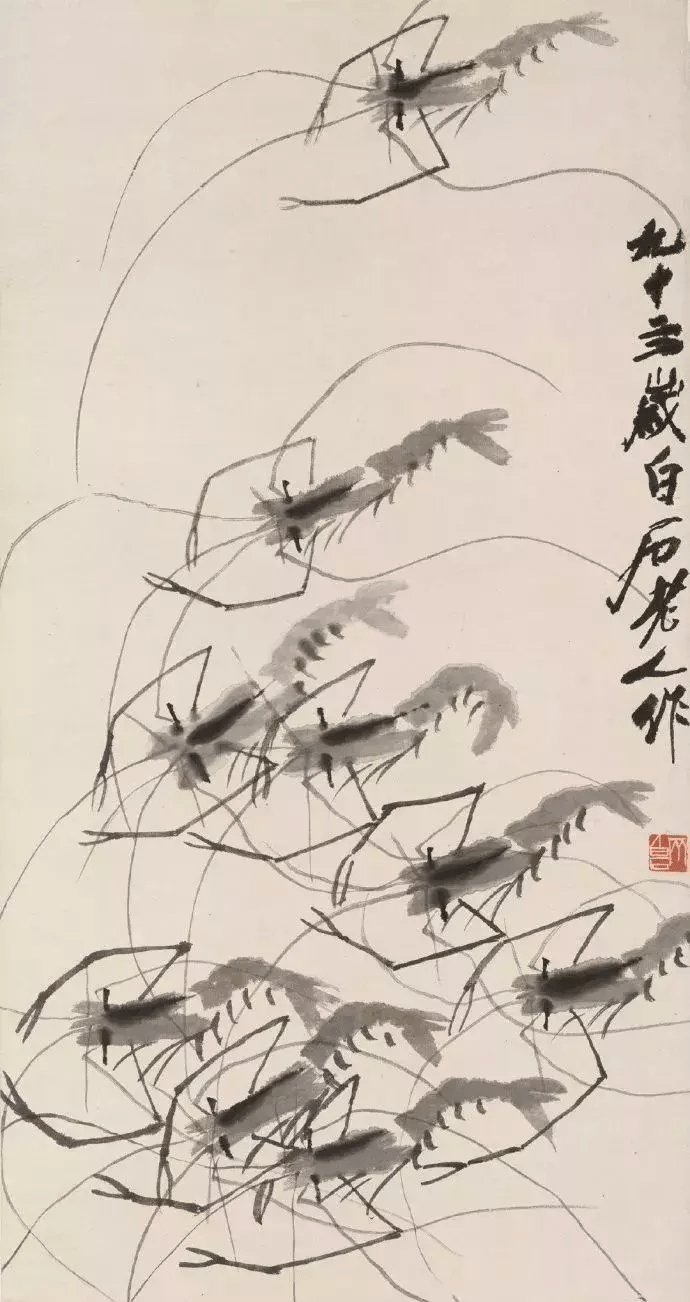 九十三歲白石老人作